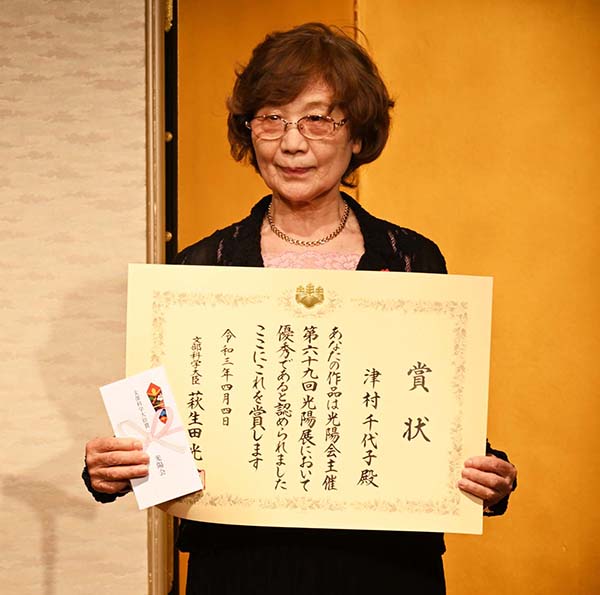 賞状
津村千代子殿
あなたの作品は光陽会主催
第六十九回光陽展において
優秀であると認められました
ここにこれを賞します
令和三年四月四日
文部科学大臣 萩生田光
文部科学大臣賞
光陽会